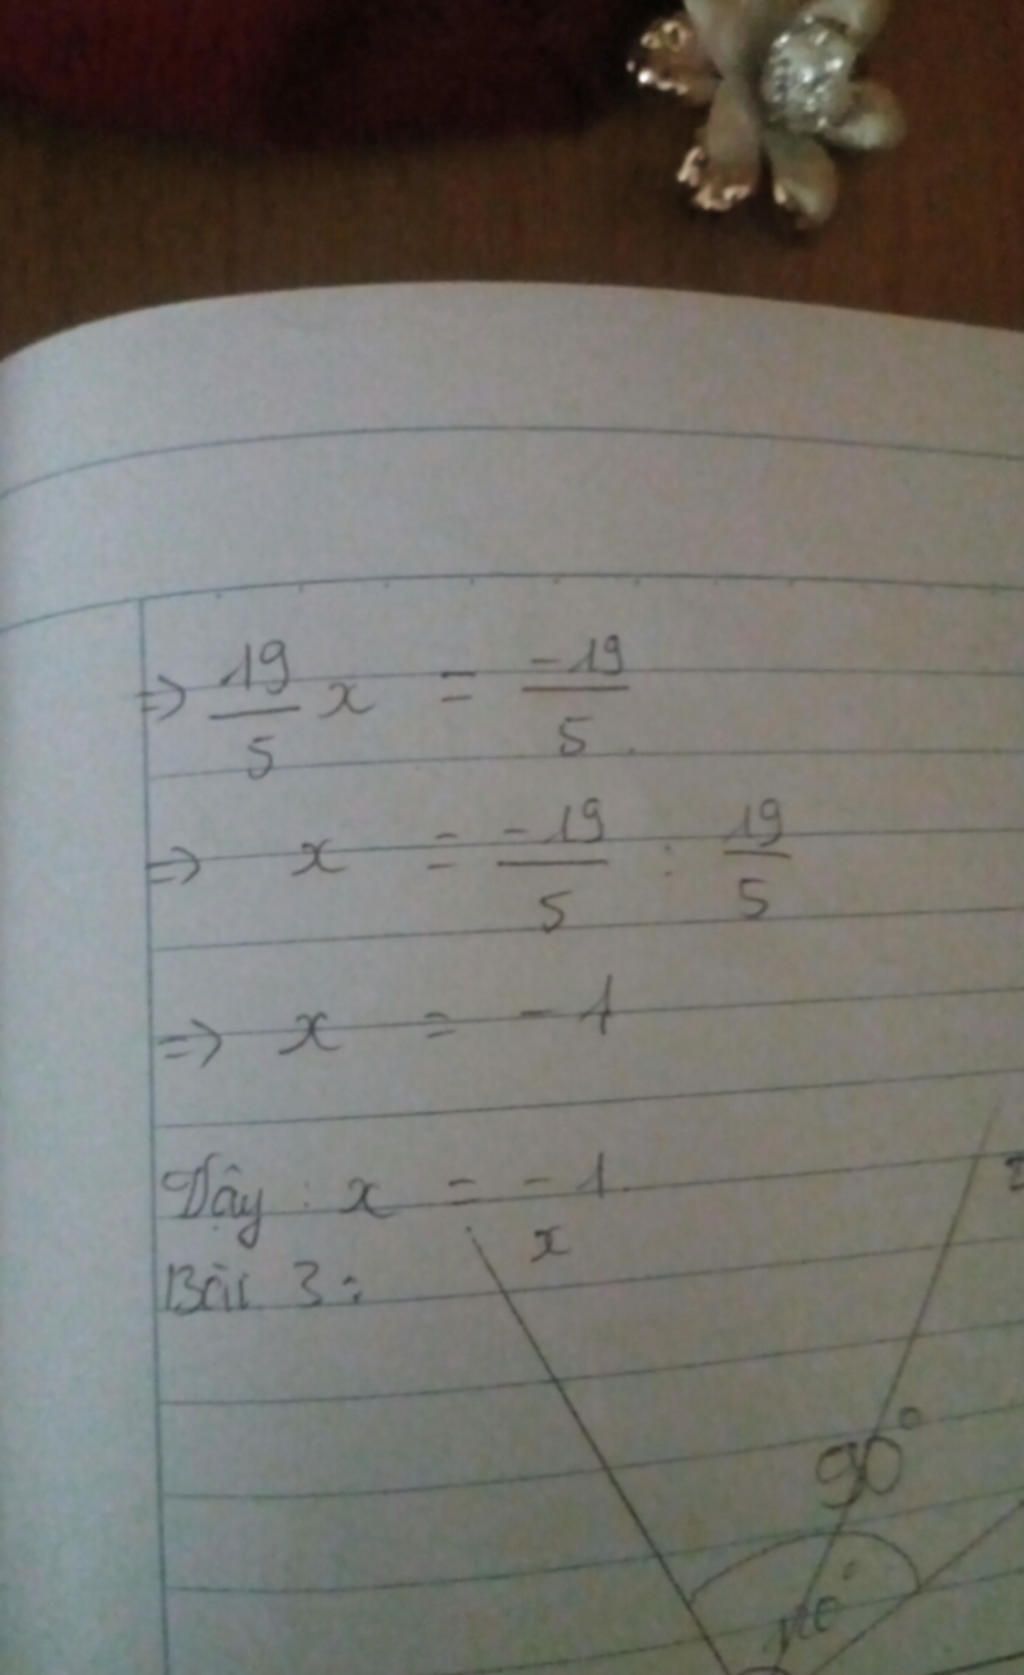 => 19/5 x = -19/5
=> x = -19/5 : 19/5
=> x = -1
Vậy : x = -1
x
Bài 3:
90°